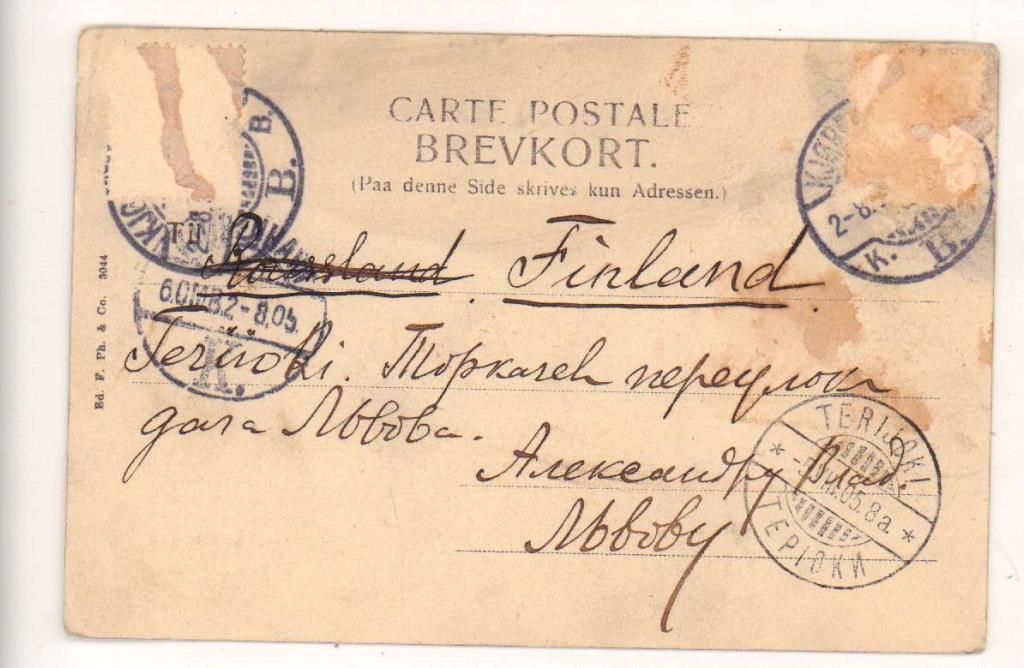 CARTE POSTALE
BREVKORT.
(Paa denne Side skrives kun Adressen.)
B.
B.
KJØB
2-8.
K. B.
Til
Russland Finland
6.OMB.2-8.05.
K.
Ed. F. Ph. & Co. 3044
Terijoki. переулок
дача Львова.
Александру Влад.
Львову
TERIJOKI
05.8a.
ТЕРІОКИ